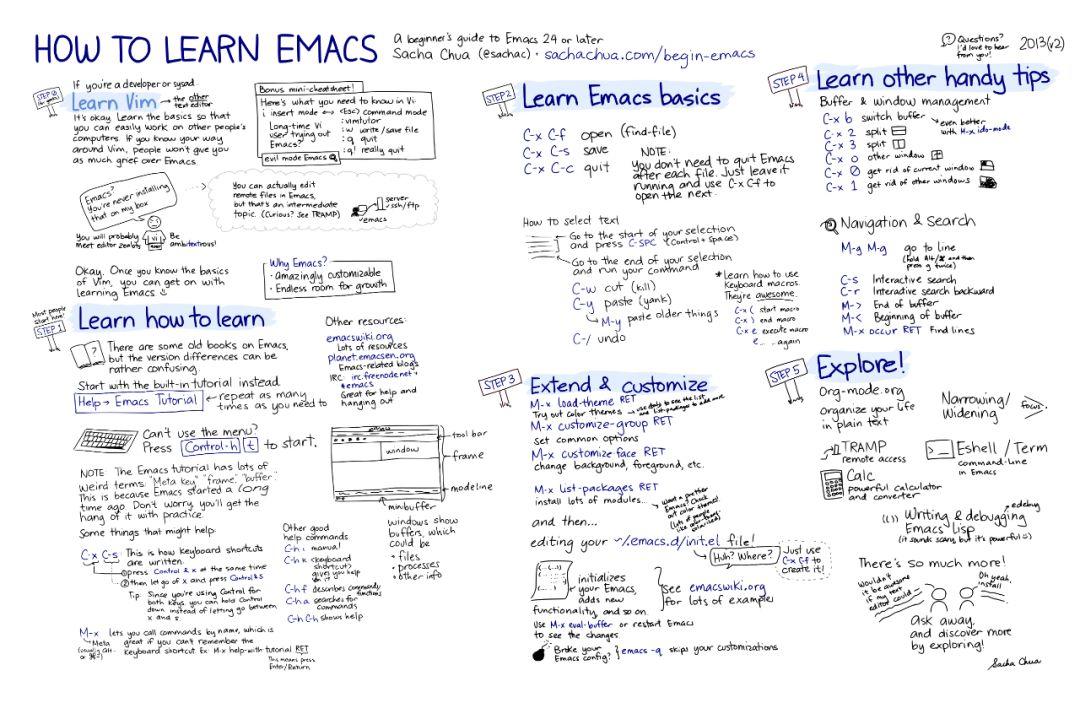 HOW TO LEARN EMACS
A beginner's guide to Emacs 24 or later
Sacha Chua (@sachac) · sachachua.com/begin-emacs
Questions?
I'd love to hear
from you!
2013(v2)
STEP 0
If you're a developer or sysad...
Learn Vim → the other
text editor
It's okay. Learn the basics so that
you can easily work on other people's
computers. If you know your way
around Vim, people won't give you
as much grief over Emacs.
Bonus mini-cheatsheet!
Here's what you need to know in Vi:
i insert mode ↔ <Esc> command mode
Long-time Vi
user trying out
Emacs?
:w write/save file
:q quit
:q! really quit
evil mode Emacs
Emacs?
you're never installing
that on my box
You can actually edit
remote files in Emacs,
but that's an intermediate
topic. (Curious? See TRAMP)
server
ssh/ftp
emacs
You will probably
meet editor zealots
Vi
Be
ambitextrous!
Okay. Once you know the basics
of Vim, you can get on with
learning Emacs
Why Emacs?
· amazingly customizable
· Endless room for growth
Most people
start here!
STEP 1
Learn how to learn
?
There are some old books on Emacs,
but the version differences can be
rather confusing.
Start with the built-in tutorial instead
Help → Emacs Tutorial ← repeat as many
times as you need to
Other resources:
emacswiki.org
Lots of resources
planet.emacsen.org
Emacs-related blogs
IRC: irc.freenode.net
#emacs
Great for help and
hanging out
Can't use the menu?
Press Control-h t to start.
window
tool bar
frame
modeline
minibuffer
NOTE: The Emacs tutorial has lots of
weird terms: "Meta key," "frame," "buffer."
This is because Emacs started a long
time ago. Don't worry, you'll get the
hang of it with practice.
windows show
buffers, which
could be:
· files
· processes
· other info
Some things that might help:
C-x C-s This is how keyboard shortcuts
are written.
① press Control & x at the same time
② then let go of x and press Control & s
Tip: Since you're using Control for
both keys, you can hold Control
down instead of letting go between
x and s.
M-x lets you call commands by name, which is
great if you can't remember the
keyboard shortcut. Ex: M-x help-with-tutorial RET
Meta
(usually Alt-
or ⌘-)
This means press
Enter/Return
Other good
help commands
C-h i manual
C-h k (keyboard
shortcut)
gives you help
on it
C-h f describes commands/
functions
C-h a searches for
commands
C-h C-h shows help
STEP 2
Learn Emacs basics
C-x C-f open (find-file)
C-x C-s save
C-x C-c quit
NOTE:
You don't need to quit Emacs
after each file. Just leave it
running and use C-x C-f to
open the next.
How to select text
Go to the start of your selection
and press C-SPC (Control + Space)
Go to the end of your selection
and run your command
C-w cut (kill)
C-y paste (yank)
M-y paste older things
C-/ undo
* Learn how to use
Keyboard macros.
They're awesome.
C-x ( start macro
C-x ) end macro
C-x e execute macro
e... again
STEP 3
Extend & customize
M-x load-theme RET
Try out color themes
M-x customize-group RET
Set common options
M-x customize-face RET
change background, foreground, etc.
M-x list-packages RET
install lots of modules...
Want a prettier
Emacs? Check
out color themes!
(Lots of people
like solarized)
and then...
editing your ~/.emacs.d/init.el file!
Huh? Where?
Just use
C-x C-f to
create it!
initializes
your Emacs,
adds new
functionality, and so on
see emacswiki.org
for lots of examples
Use M-x eval-buffer or restart Emacs
to see the changes.
Broke your
Emacs config? } emacs -q skips your customizations
STEP 4
Learn other handy tips
Buffer & window management
C-x b switch buffer
even better
with M-x ido-mode
C-x 2 split
C-x 3 split
C-x o other window
C-x 0 get rid of current window
C-x 1 get rid of other windows
Navigation & Search
M-g M-g go to line
(hold Alt/⌘ and then
press g twice)
C-s Interactive search
C-r Interactive search backward
M-> End of buffer
M-< Beginning of buffer
M-x occur RET Find lines
STEP 5
Explore!
Org-mode.org
organize your life
in plain text
Narrowing/
Widening
Focus.
TRAMP
remote access
Eshell / Term
command-line
in Emacs
Calc
powerful calculator
and converter
edebug
(()) Writing & debugging
Emacs Lisp
(it sounds scary, but it's powerful =)
There's so much more!
Wouldn't
it be awesome
if my text
editor could...
Oh yeah,
install
Ask away,
and discover more
by exploring!
Sacha Chua